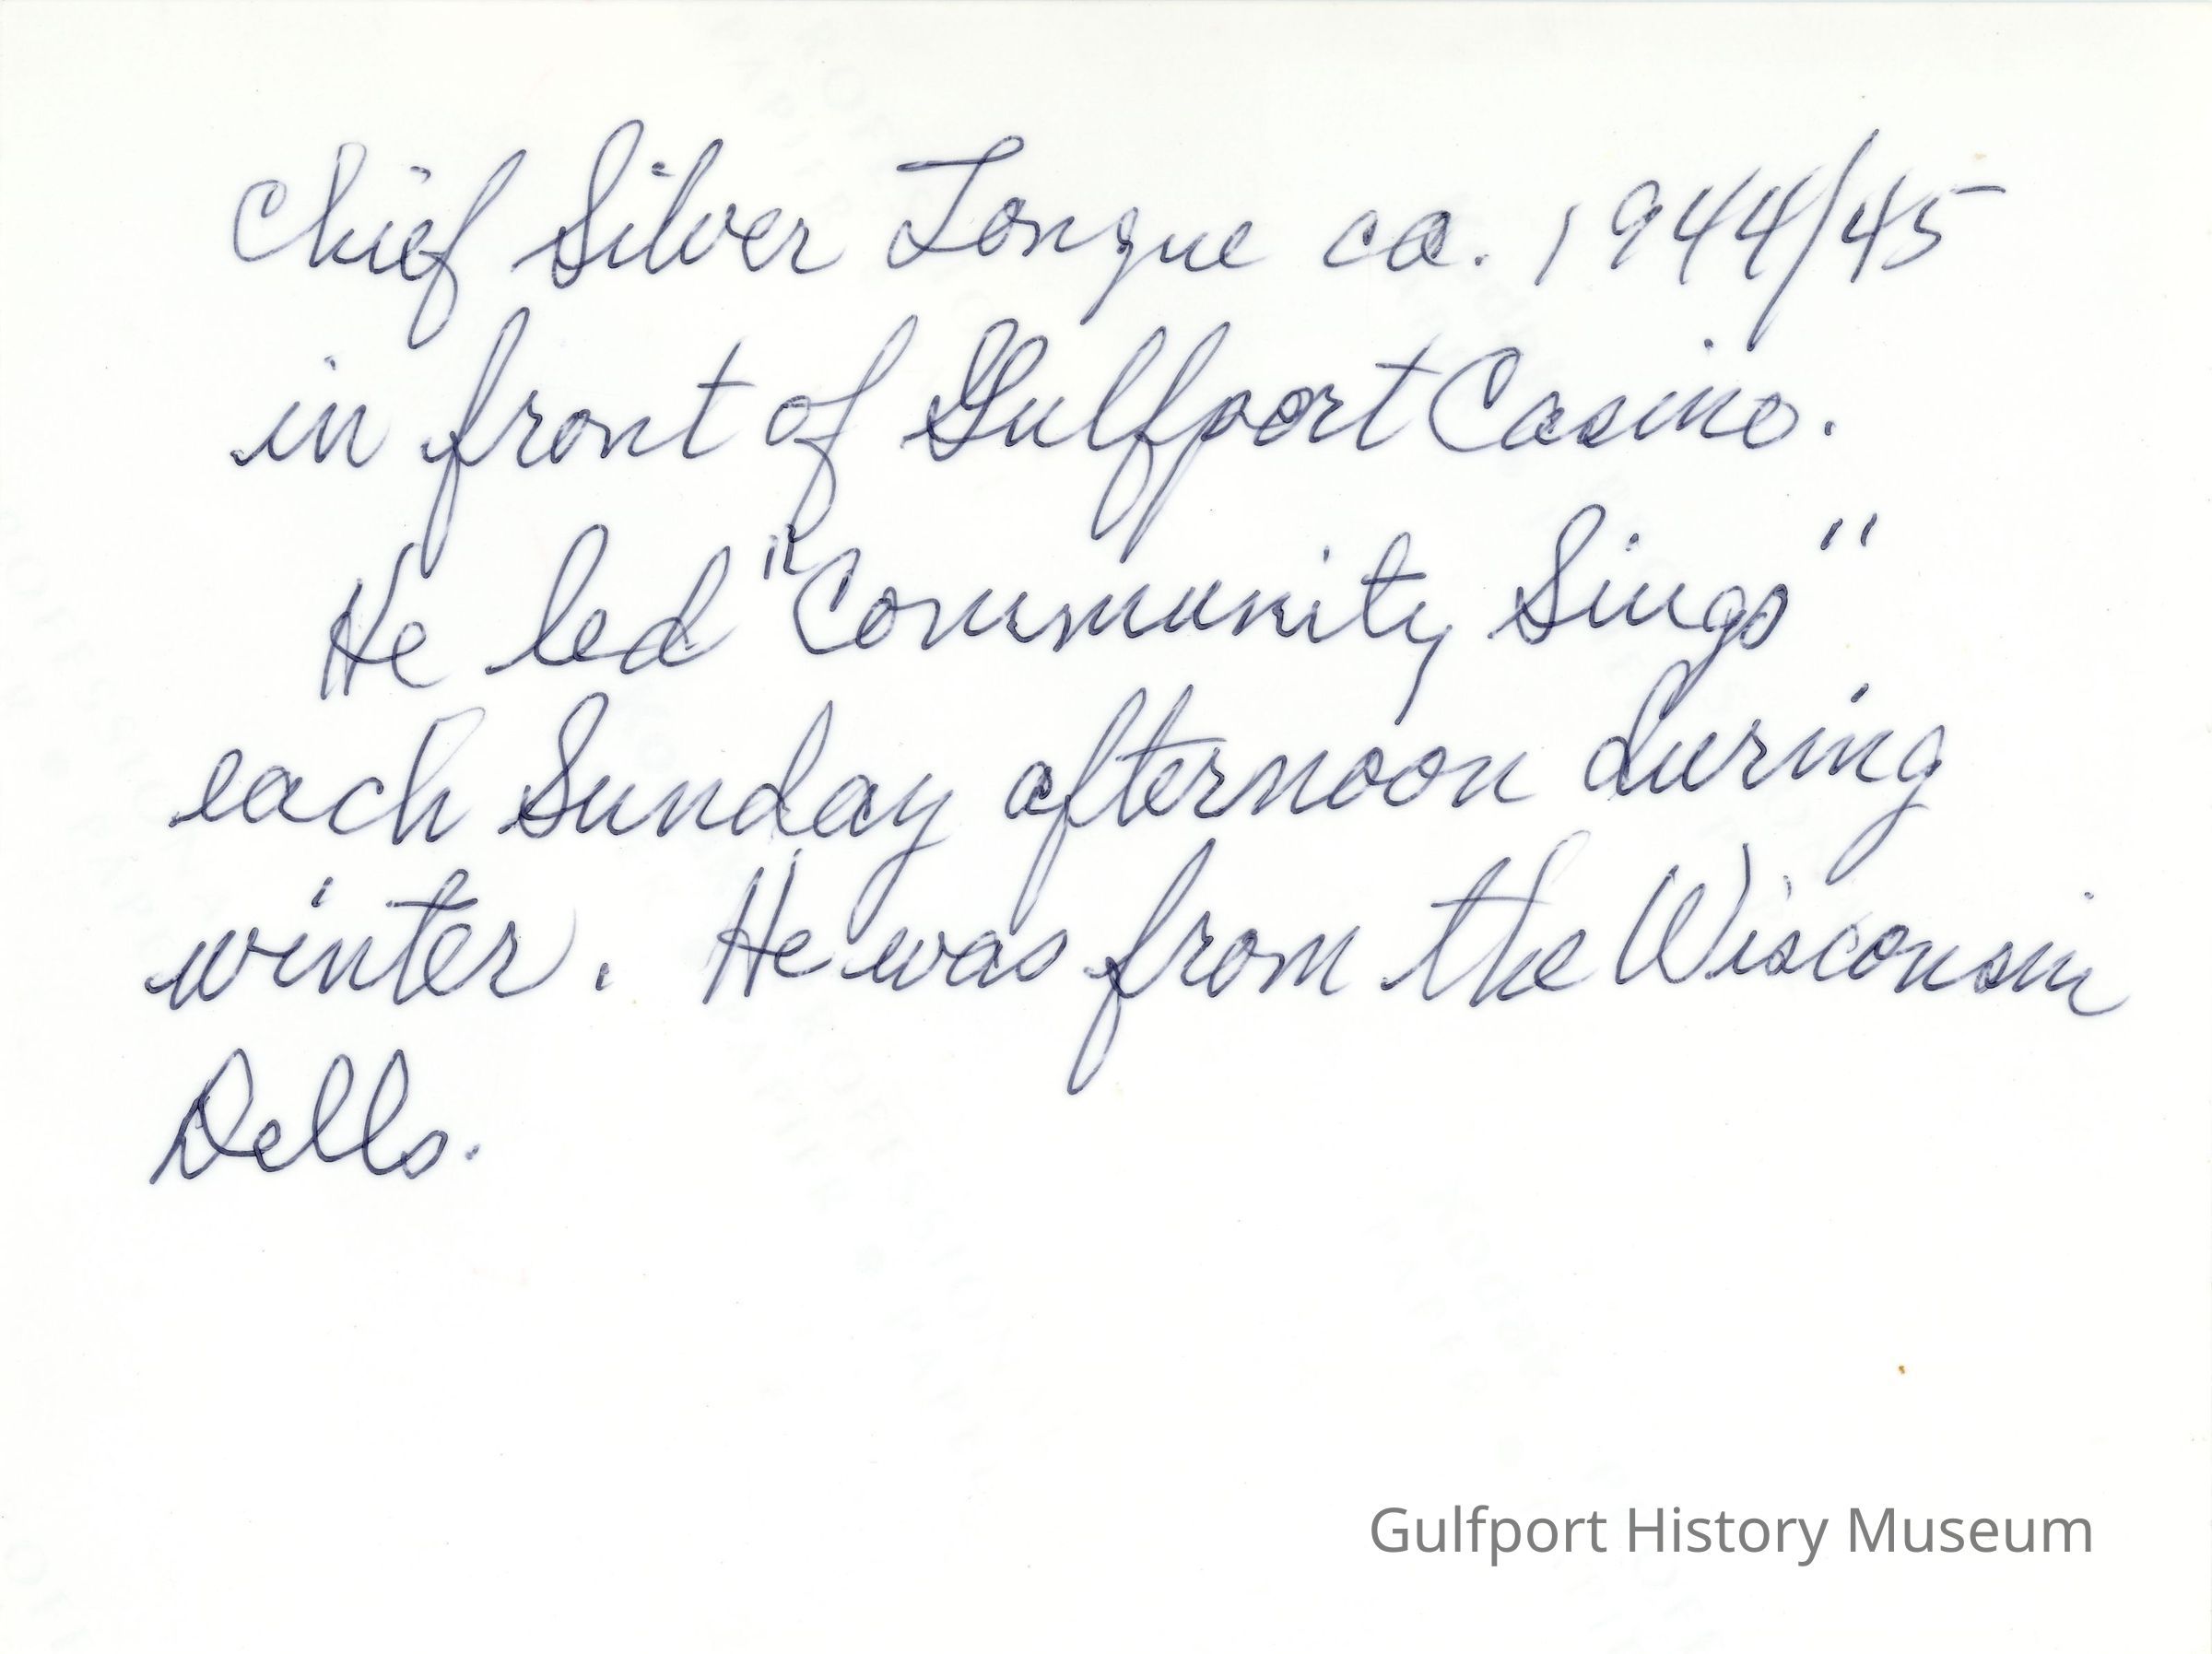 Chief Silver Tongue ca. 1944/45
in front of Gulfport Casino.
He led "Community Sings"
each Sunday afternoon during
winter. He was from the Wisconsin
Dells.
Gulfport History Museum